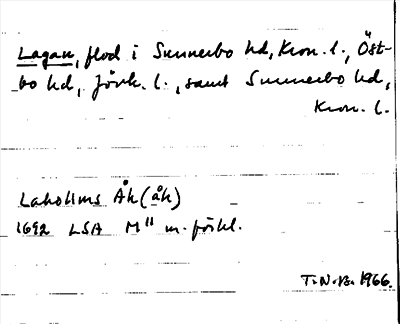 Lagan, flod i Sunnerbo hd, Kron. l., Öst-
bo hd, Jönk. l., samt Sunnerbo hd,
Kron. l.
Laholms Åh (åh)
1692 LSA M" m. förkl.
T. N-n. 1966.